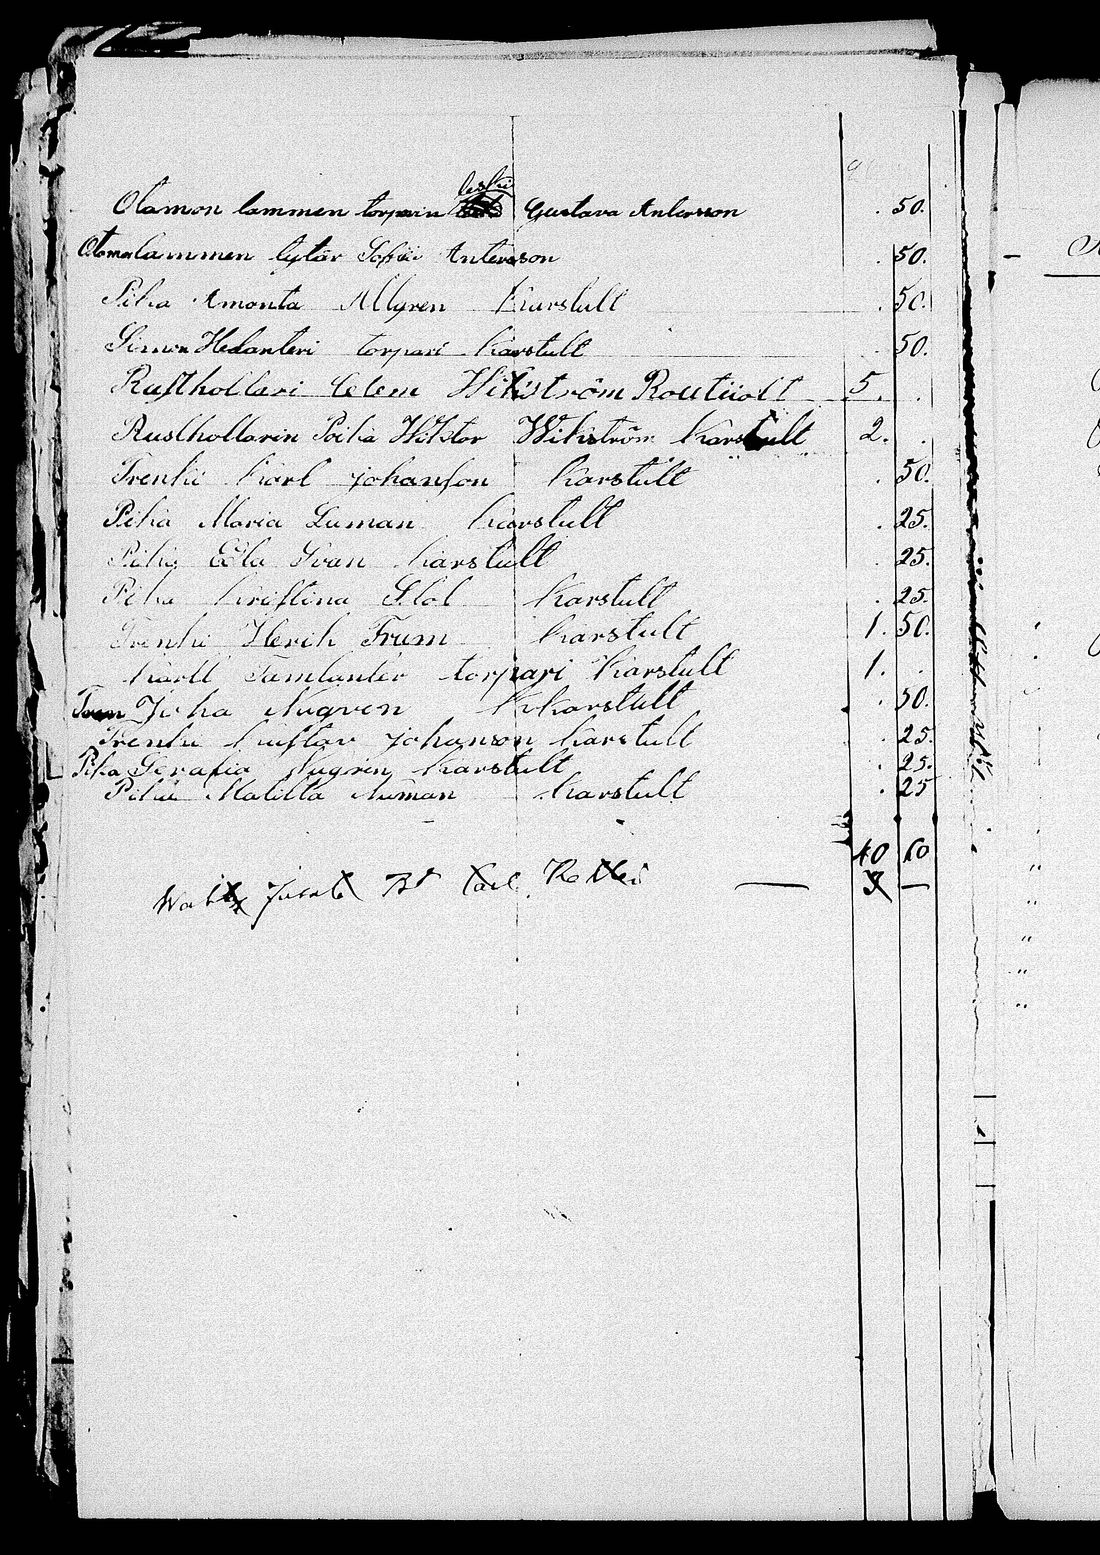 leski
Otamon lammen torparin Gustava Anlersson . 50.
Otamalammen lytär Sofiia Antersson . 50.
Piha Amanta Allgren Karstult . 50.
Simon Helanteri torpari Karstult . 50.
Rusthollari Celem Wikström Routiiolt 5. .
Rusthollarin Poika Wiktor Wikström Karstult 2. .
Trenki Karl Johansson Karstult . 50.
Piha Maria Luman Karstult . 25.
Piha Edla Svan Karstult . 25.
Piha Kristiina Slol Karstult . 25.
Trenki Herik Frum Karstult 1. 50.
Karll Tamlanter torpari Karstult 1. .
Juha Nugren Karstult . 50.
Trenki Kustav Johanson Karstult . 25.
Piha Serafia Nugren Karstult . 25.
Pikia Matilta Numan Karstult . 25
40 10
Carl — —